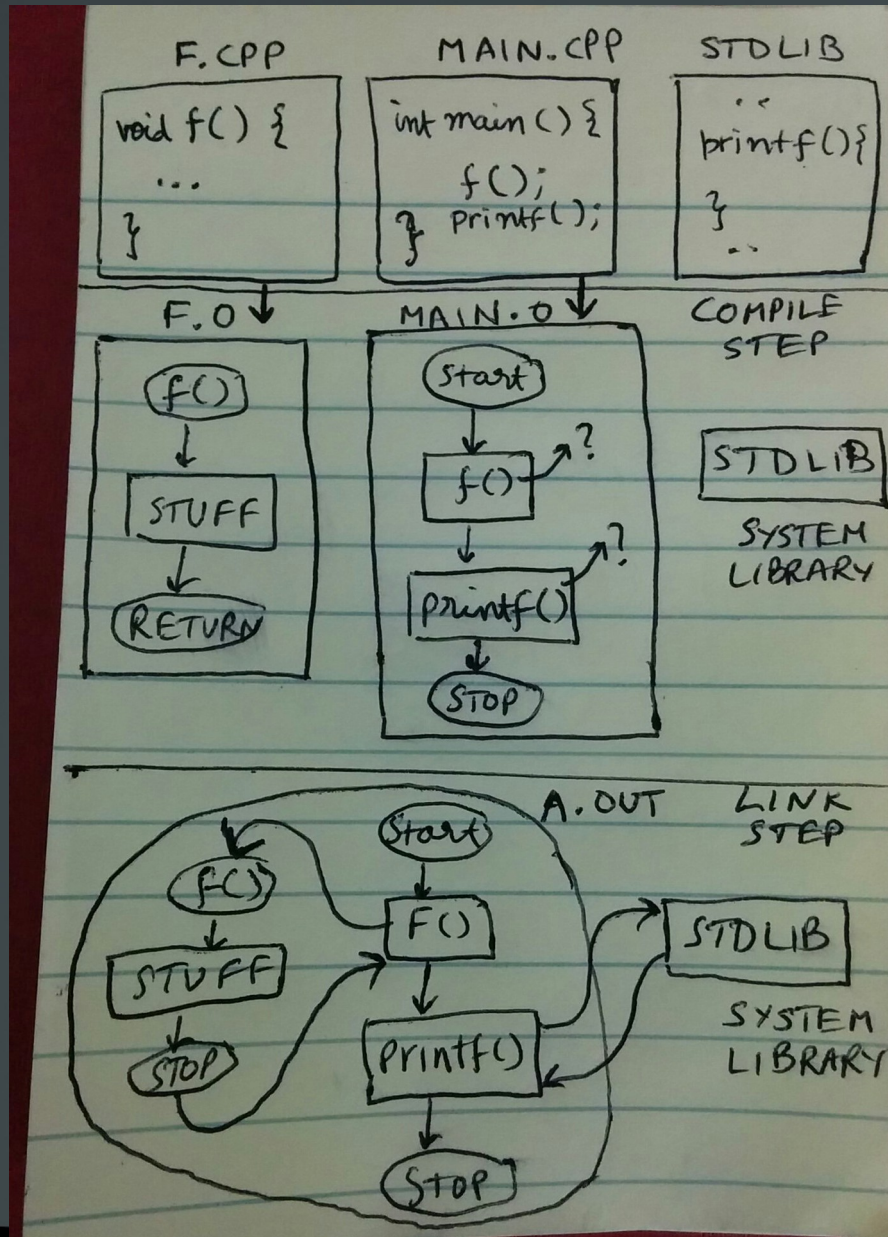 F.CPP
void f() {
...
}
MAIN.CPP
int main() {
f();
} printf();
STDLIB
..
printf(){
}
..
COMPILE
STEP
F.O
f()
STUFF
RETURN
MAIN.O
Start
f() ?
printf() ?
STOP
STDLIB
SYSTEM
LIBRARY
A.OUT
LINK
STEP
f()
STUFF
STOP
Start
F()
printf()
STOP
STDLIB
SYSTEM
LIBRARY